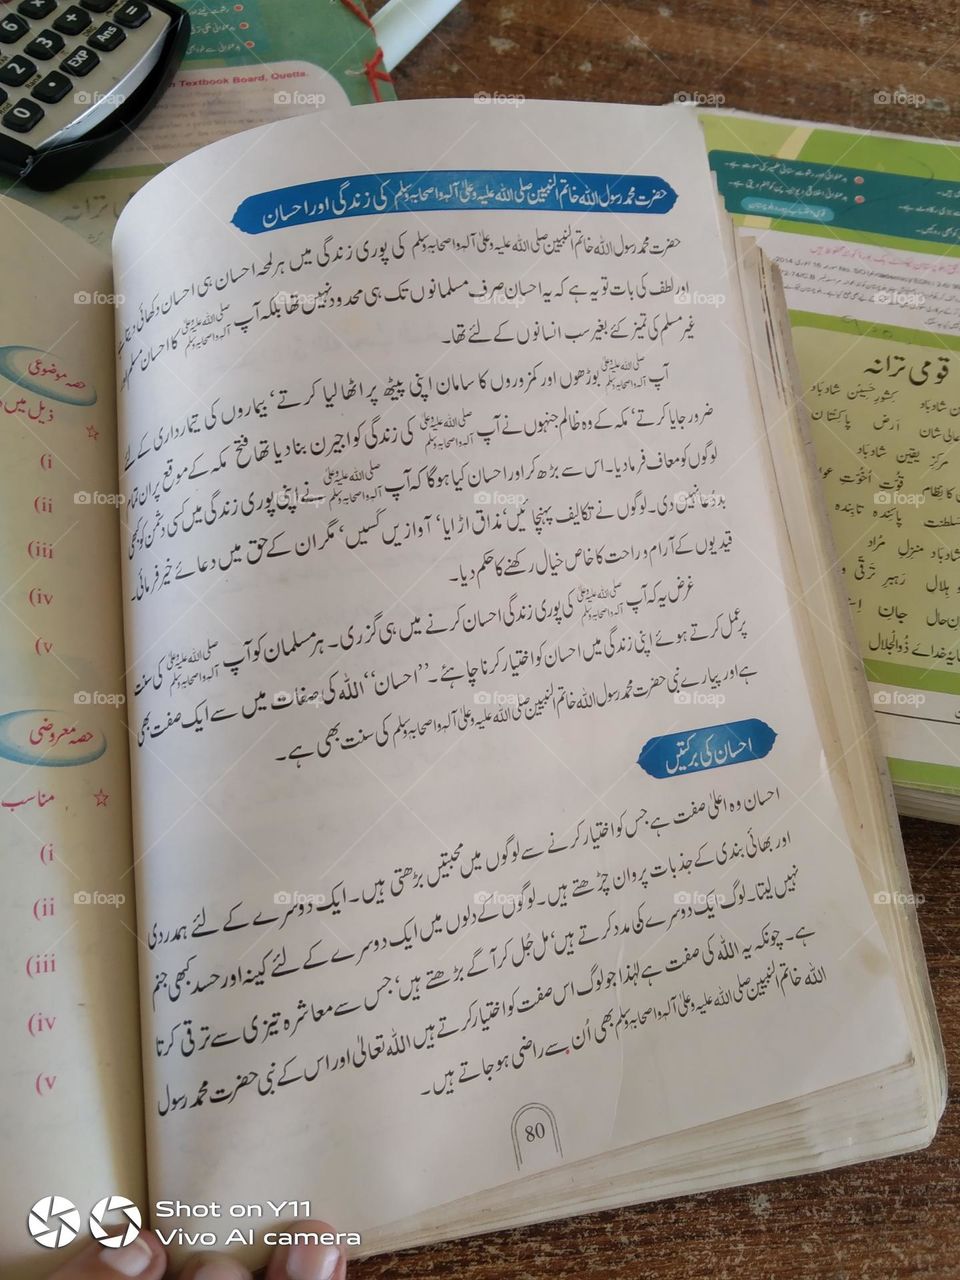 حضرت محمد رسول اللہ خاتم النبیین صلی اللہ علیہ وعلیٰ آلہ واصحابہ وسلم کی زندگی اور احسان
حضرت محمد رسول اللہ خاتم النبیین صلی اللہ علیہ وعلیٰ آلہ واصحابہ وسلم کی پوری زندگی میں ہر لمحہ احسان ہی احسان دکھائی دیتا ہے
اور لطف کی بات تو یہ ہے کہ یہ احسان صرف مسلمانوں تک ہی محدود نہیں تھا بلکہ آپ صلی اللہ علیہ وعلیٰ آلہ واصحابہ وسلم کا احسان مسلم اور
غیر مسلم کی تمیز کئے بغیر سب انسانوں کے لئے تھا۔
آپ صلی اللہ علیہ وعلیٰ آلہ واصحابہ وسلم بوڑھوں اور کمزوروں کا سامان اپنی پیٹھ پر اٹھا لیا کرتے‘ بیماروں کی تیمارداری کے لئے
ضرور جایا کرتے‘ مکہ کے وہ ظالم جنہوں نے آپ صلی اللہ علیہ وعلیٰ آلہ واصحابہ وسلم کی زندگی کو اجیرن بنا دیا تھا فتح مکہ کے موقع پر ان تمام
لوگوں کو معاف فرما دیا۔ اس سے بڑھ کر اور احسان کیا ہوگا کہ آپ صلی اللہ علیہ وعلیٰ آلہ واصحابہ وسلم نے اپنی پوری زندگی میں کسی دشمن کو بھی
بددعا نہیں دی۔ لوگوں نے تکالیف پہنچائیں‘ مذاق اڑایا‘ آوازیں کسیں‘ مگر ان کے حق میں دعائے خیر فرمائی۔
قیدیوں کے آرام و راحت کا خاص خیال رکھنے کا حکم دیا۔
غرض یہ کہ آپ صلی اللہ علیہ وعلیٰ آلہ واصحابہ وسلم کی پوری زندگی احسان کرنے میں ہی گزری۔ ہر مسلمان کو آپ صلی اللہ علیہ وعلیٰ آلہ واصحابہ وسلم کی سنت
پر عمل کرتے ہوئے اپنی زندگی میں احسان کو اختیار کرنا چاہئے۔ ’’احسان‘‘ اللہ کی صفات میں سے ایک صفت بھی
ہے اور پیارے نبی حضرت محمد رسول اللہ خاتم النبیین صلی اللہ علیہ وعلیٰ آلہ واصحابہ وسلم کی سنت بھی ہے۔
احسان کی برکتیں
احسان وہ اعلیٰ صفت ہے جس کو اختیار کرنے سے لوگوں میں محبتیں بڑھتی ہیں۔ ایک دوسرے کے لئے ہمدردی
اور بھائی بندی کے جذبات پروان چڑھتے ہیں۔ لوگوں کے دلوں میں ایک دوسرے کے لئے کینہ اور حسد کبھی جنم
نہیں لیتا۔ لوگ ایک دوسرے کی مدد کرتے ہیں‘ مل جُل کر آگے بڑھتے ہیں‘ جس سے معاشرہ تیزی سے ترقی کرتا
ہے۔ چونکہ یہ اللہ کی صفت ہے لہٰذا جو لوگ اس صفت کو اختیار کرتے ہیں اللہ تعالیٰ اور اس کے نبی حضرت محمد رسول
اللہ خاتم النبیین صلی اللہ علیہ وعلیٰ آلہ واصحابہ وسلم بھی اُن سے راضی ہو جاتے ہیں۔
80
حصہ موضوعی
ذیل میں
(i
(ii
(iii
(iv
(v
حصہ معروضی
مناسب
(i
(ii
(iii
(iv
(v
قومی ترانہ
کشورِ حسین شاد باد
عالی شان ارضِ پاکستان
مرکزِ یقین شاد باد
قوتِ اخوتِ عوام
سلطنت پائندہ تابندہ
شاد باد منزلِ مراد
ہلال رہبرِ ترقی و
سایۂ خدائے ذوالجلال
Textbook Board, Quetta.
6
3
2
0
+
-
=
Ans
EXP
foap
Shot on Y11
Vivo AI camera